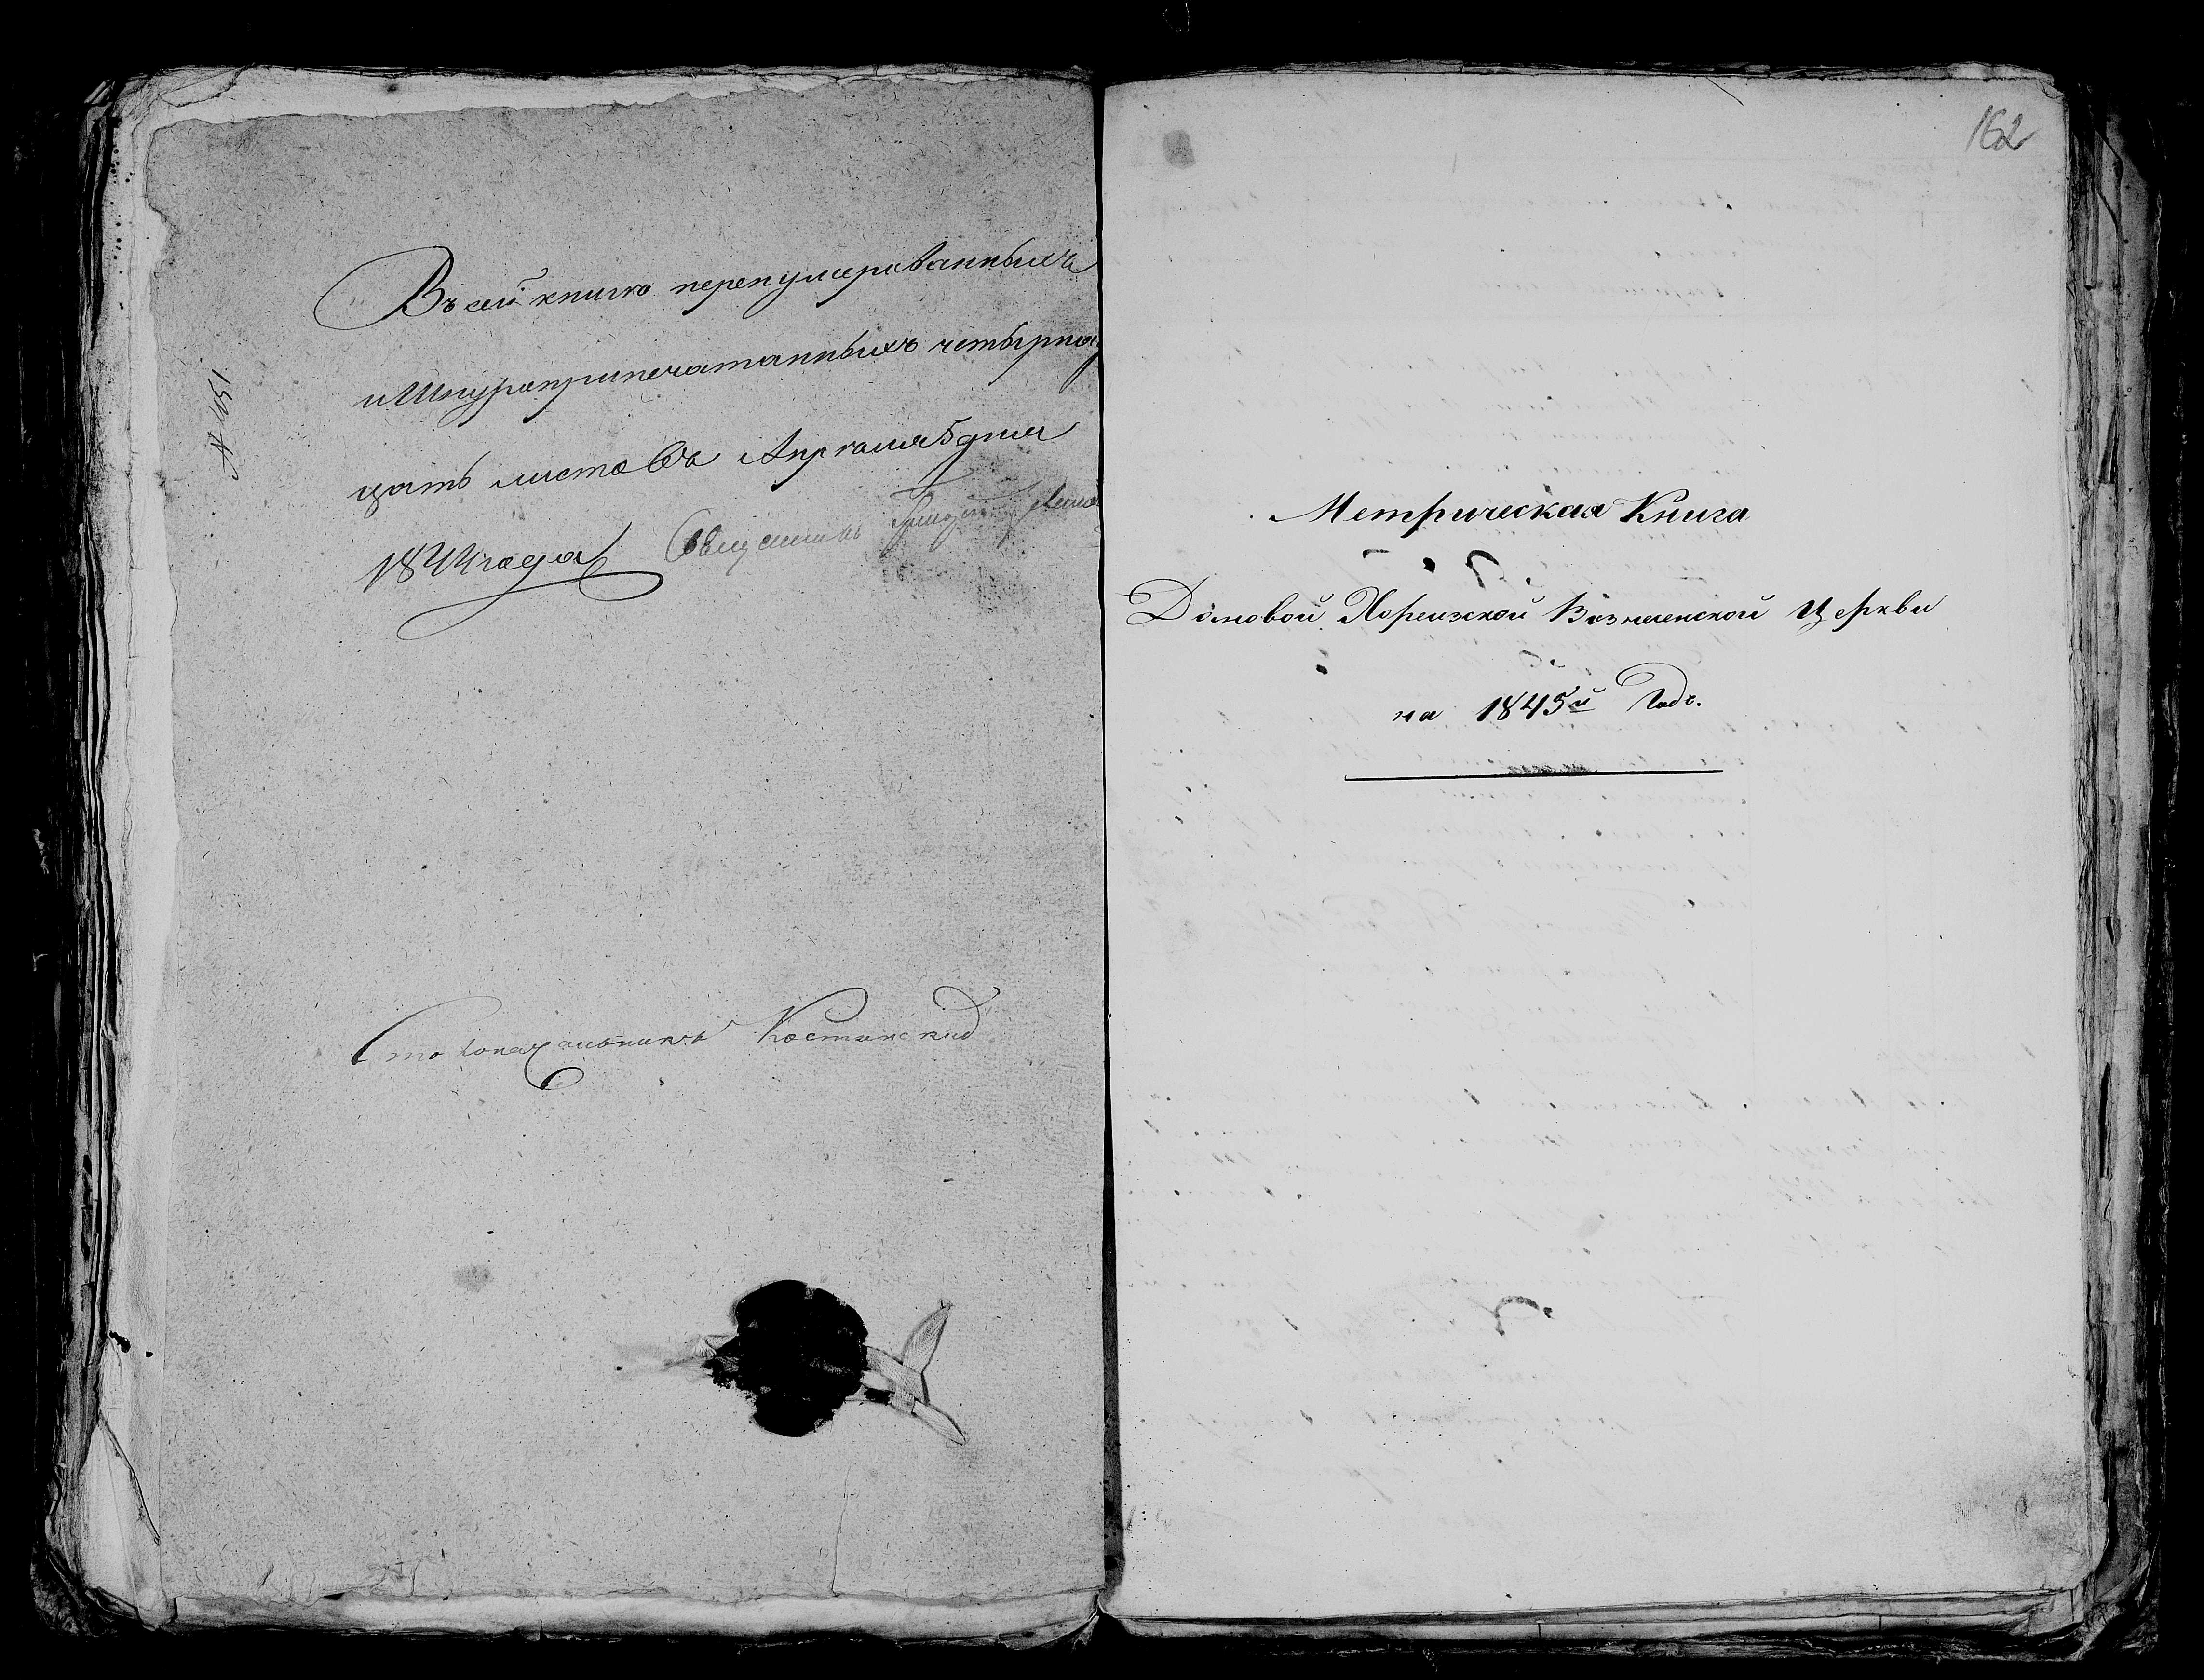 Въ сей книгѣ перенумерованныхъ
и Шнуроприпечатанныхъ четырнад
цать листовъ Апреля 5 дня
1844 года Священникъ
Столоначальникъ Костинский
№ 451.
162
Метрическая Книга
Домовой Хореизской Вознесенской Церкви
на 1845й Годъ.